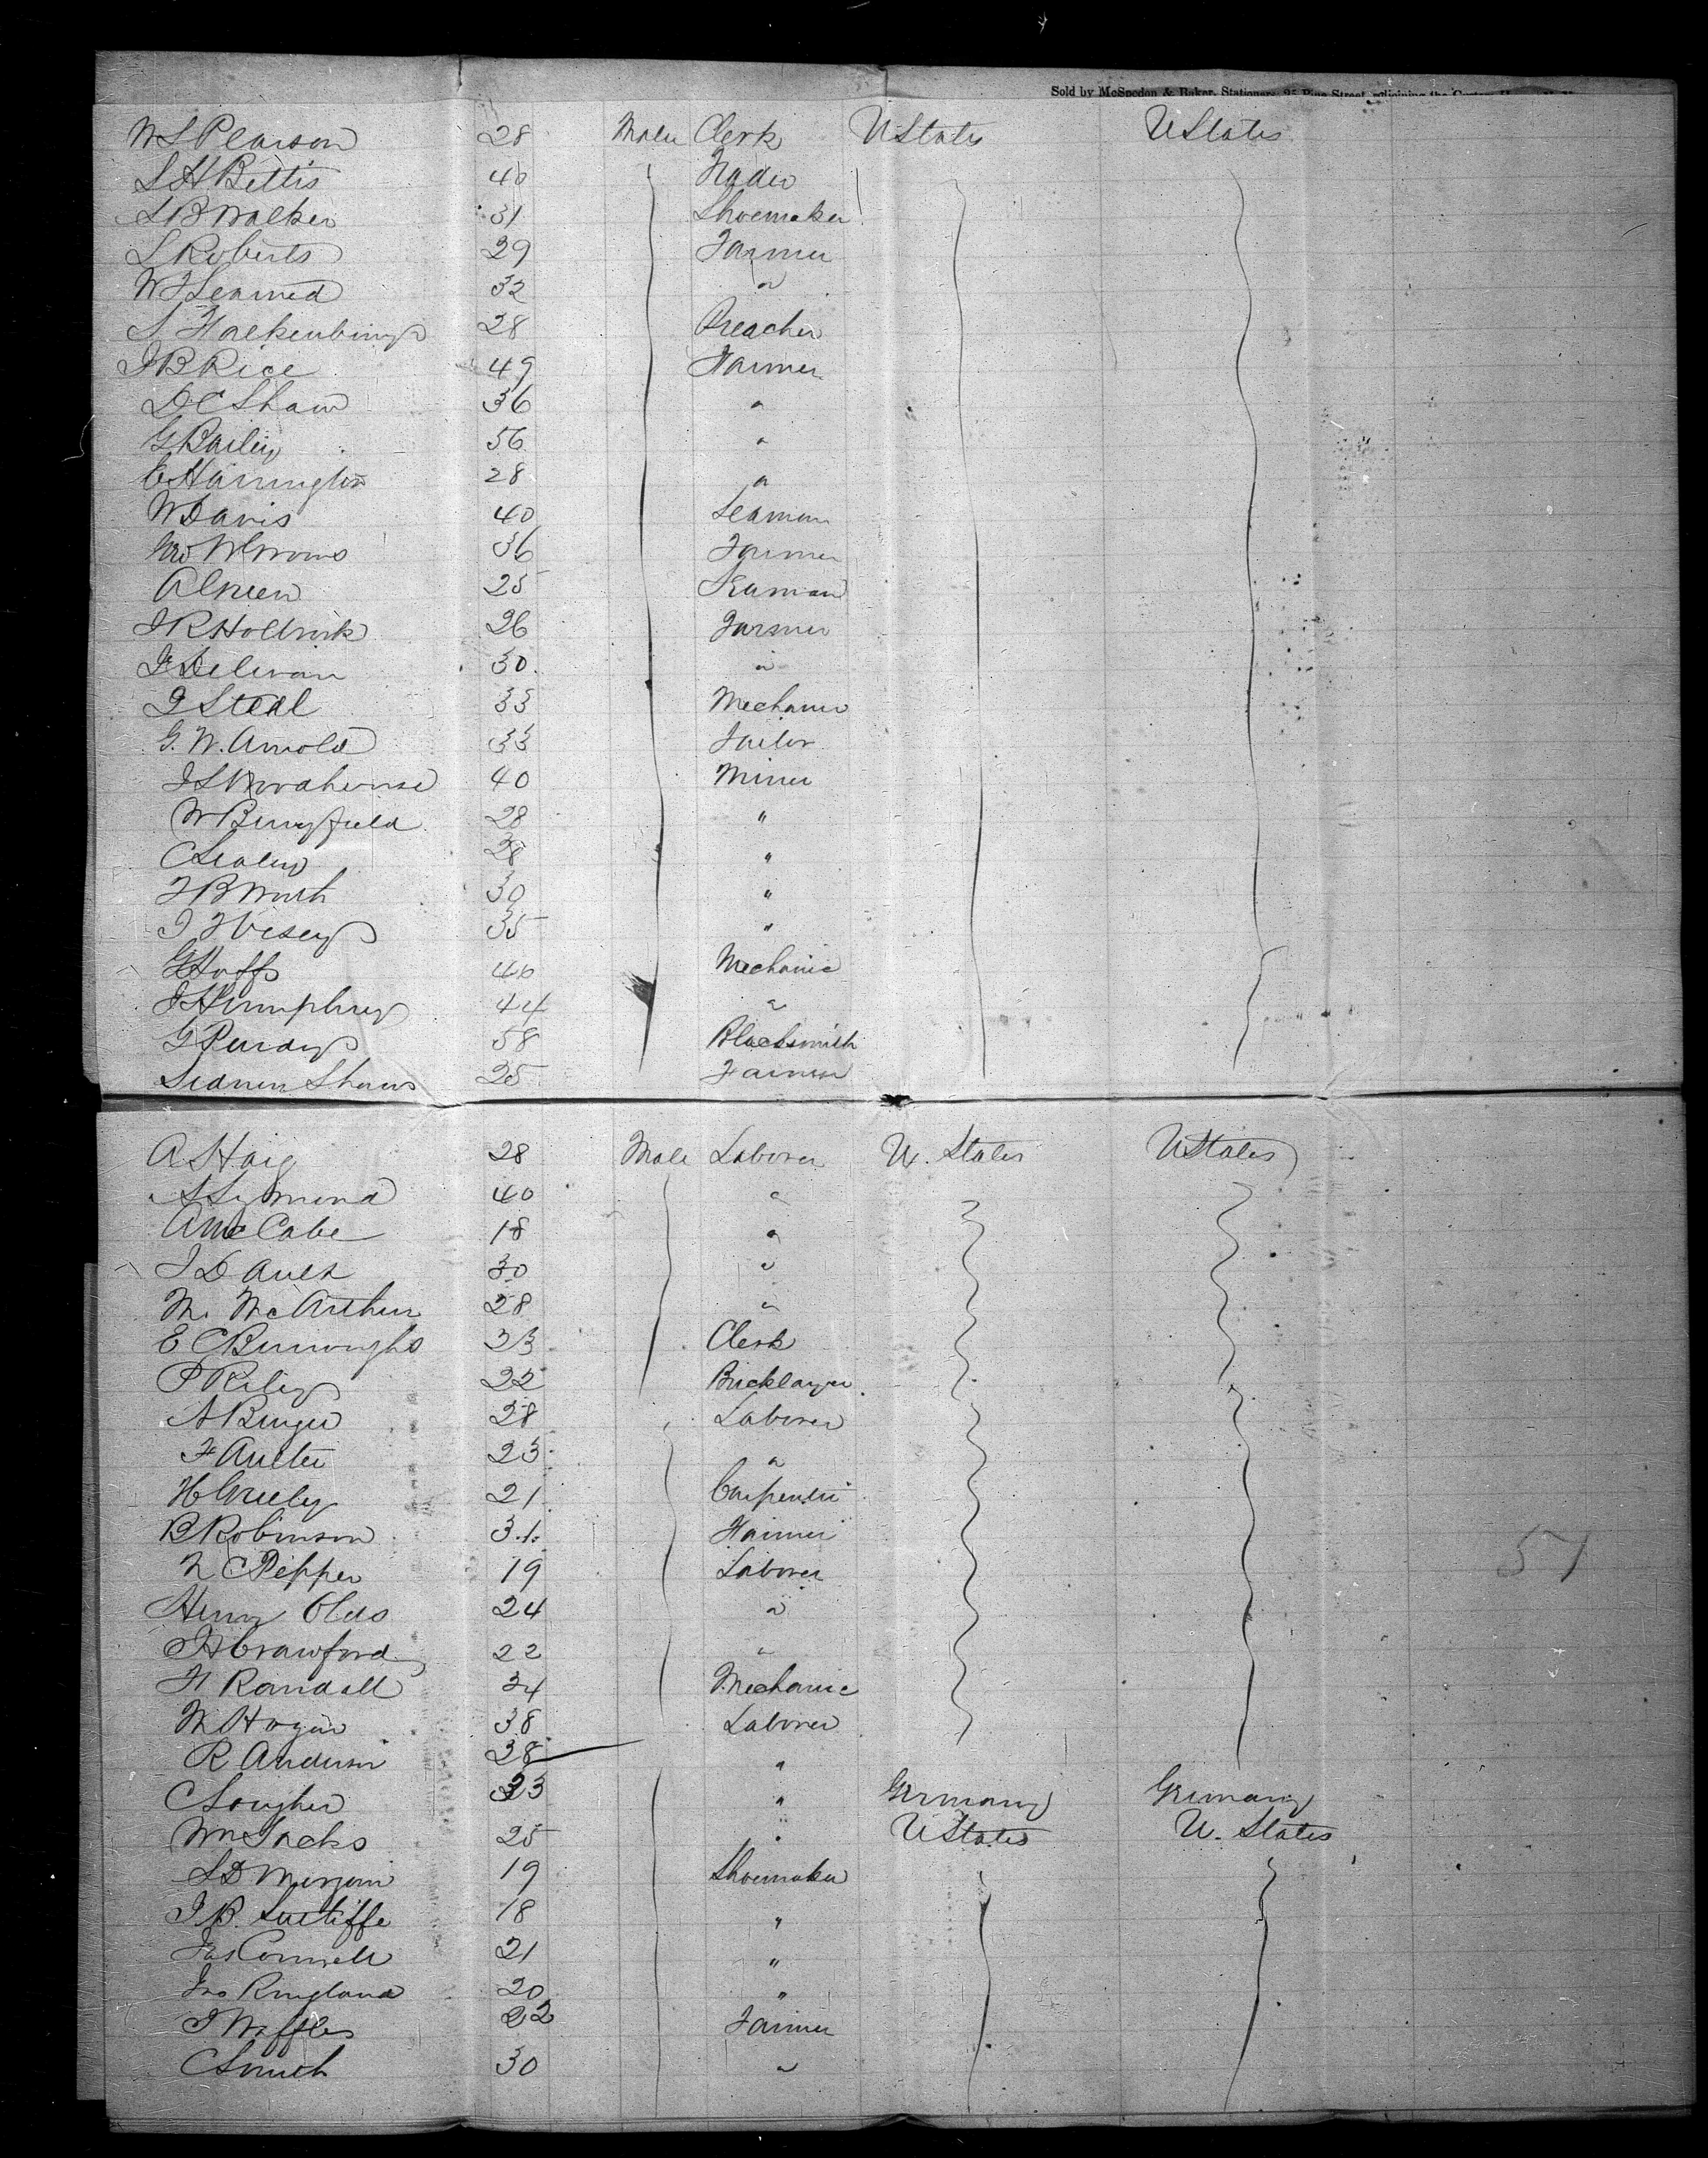 Sold by McSpedon & Baker, Stationers, 25 Pine Street, adjoining the Custom
W S Pearson 28 Male Clerk U States U States
S H Bettis 40 Trader
S B Walker 31 Shoemaker
S Roberts 29 Farmer
W F Learned 32 "
28 Preacher
J B Rice 49 Farmer
D C Shaw 36 "
G Bailey 56 "
E Harrington 28 "
W Davis 40 Seaman
Geo W 36 Farmer
A Green 25 Seaman
J R Holbrook 26 Farmer
J Delevan 30 "
J Stedl 33 Mechanic
G. W. Arnold 33 Tailor
J S 40 Miner
W Benyfield 28 "
C Sealey 28 "
J B Worth 30 "
J Vesey 35 "
G Hoff 40 Mechanic
J Humphrey 44 "
G Purdy 58 Blacksmith
Sidney Shaw 25 Farmer
A Haig 28 Male Laborer U. States U States
A Symond 40 "
A McCabe 18 "
J D Ault 30 "
M. McArthur 28 "
E C Burroughs 23 Clerk
P Riley 22 Bricklayer
A 28 Laborer
F 23 "
H Greely 21 Carpenter
B Robinson 31 Farmer
N C Pepper 19 Laborer
51
Henry Olds 24 "
J H Crawford 22 "
H Randall 34 Mechanic
M Hogan 38 Laborer
R Anderson 38 "
C 23 " Germany Germany
Wm Sacks 25 " U States U. States
S D 19 Shoemaker
J B. Sutliffe 18 "
Jas Connell 21 "
Jno Ringland 20 "
J Waffles 22 Farmer
C Smith 30 "